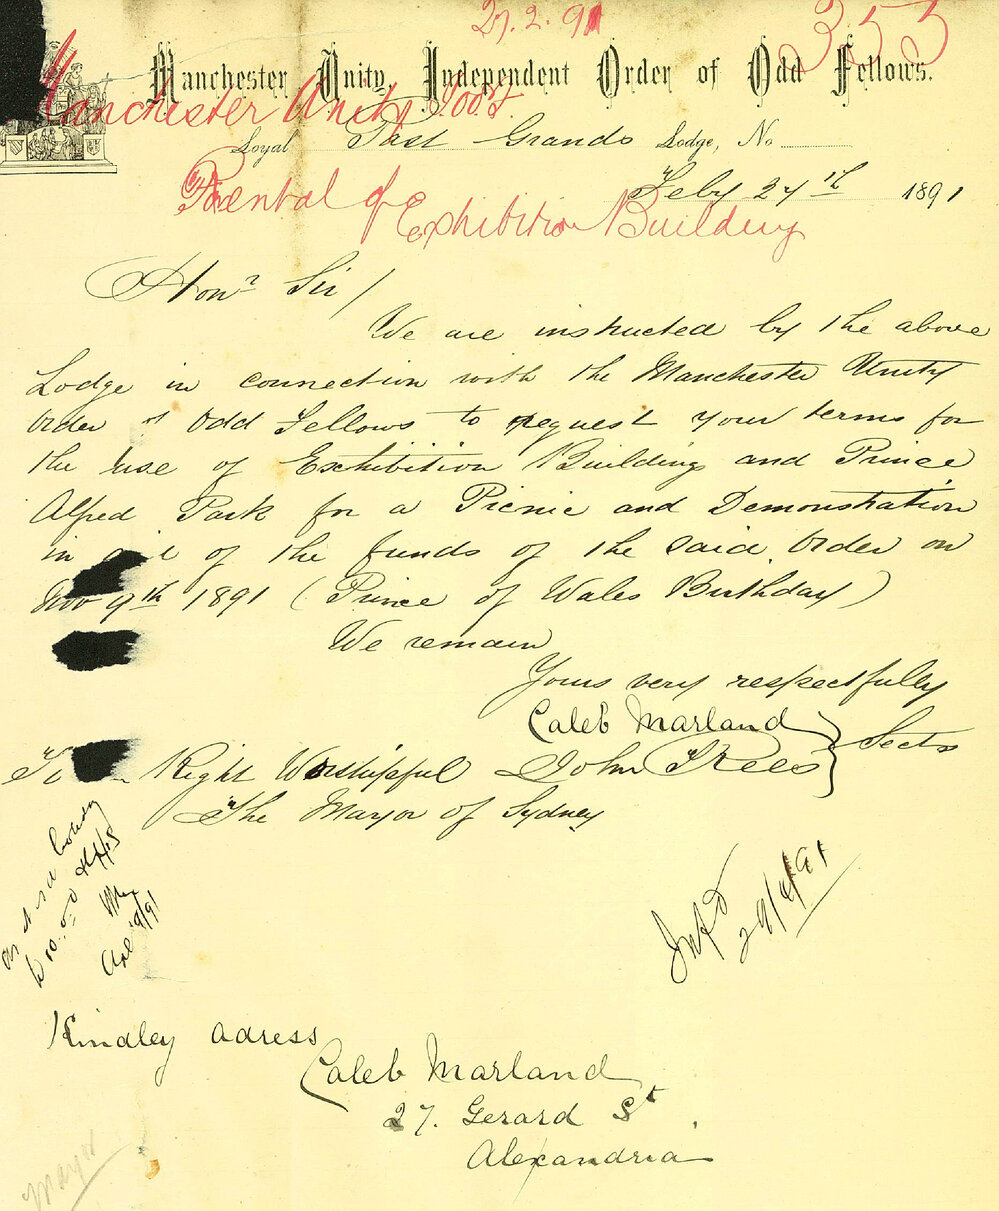 27.2.91
353
Manchester Unity Independent Order of Odd Fellows.
Manchester Unity I.O.O.F.
Loyal Past Grands Lodge, No
Feby 24th 1891
Rental of Exhibition Building
Honr Sir/
We are instructed by the above
Lodge in connection with the Manchester Unity
Order of Odd Fellows to request your terms for
the use of Exhibition Buildings and Prince
Alfred Park for a Picnic and Demonstration
in of the funds of the said Order on
Nov 9th 1891 (Prince of Wales Birthday)
We remain
Yours very respectfully
Caleb Marland
John Trees } Sects
To Right Worshipful
The Mayor of Sydney
29/4/91
Kindley adress
Caleb Marland
27. Gerard St
Alexandria
Mayor